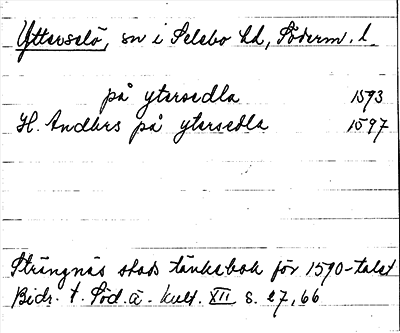 Ytterselö, sn i Selebo hd, Söderm. l.
på ytersedla 1593
H. Anders på ytersedla 1597
Strängnäs stads tänkebok för 1590-talet
Bidr. t. Söd. ä. kult. XII s. 27, 66